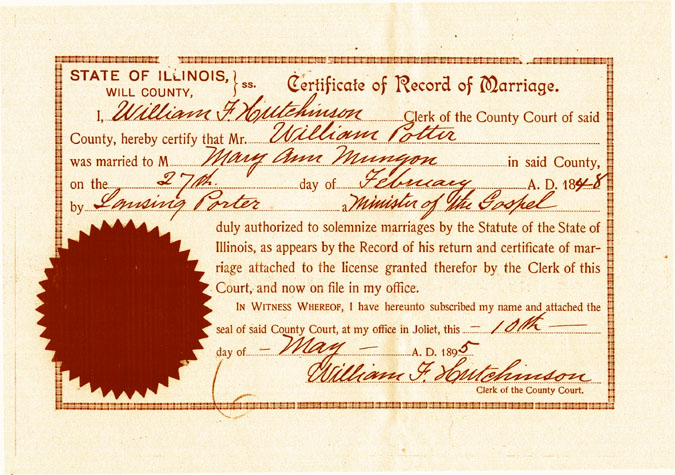 STATE OF ILLINOIS, } ss. Certificate of Record of Marriage.
WILL COUNTY,
I, William F Hutchinson Clerk of the County Court of said
County, hereby certify that Mr. William Potter
was married to M Mary Ann Mungon in said County,
on the 27th. day of February A. D. 1848
by Lansing Porter a Minister of the Gospel
duly authorized to solemnize marriages by the Statute of the State of
Illinois, as appears by the Record of his return and certificate of mar-
riage attached to the license granted therefor by the Clerk of this
Court, and now on file in my office.
IN WITNESS WHEREOF, I have hereunto subscribed my name and attached the
seal of said County Court, at my office in Joliet, this - 10th -
day of - May - A. D. 1895
William F. Hutchinson
Clerk of the County Court.